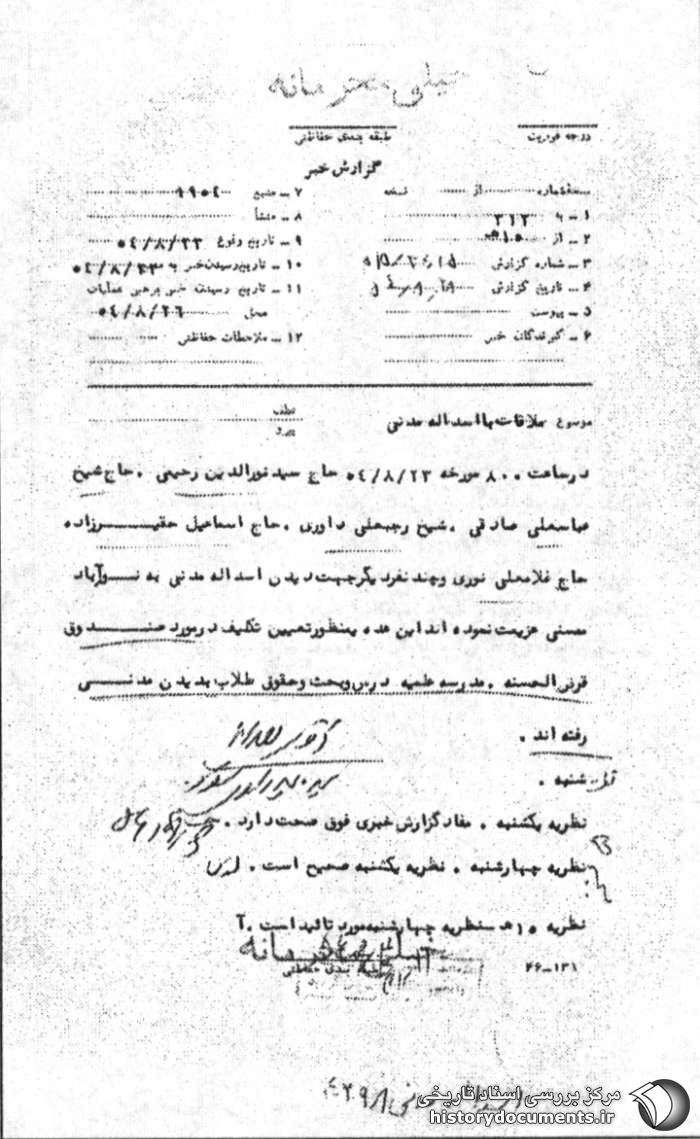 خیلی محرمانه
درجه فوریت
طبقه بندی حفاظتی
گزارش خبر
صفحه شماره از نسخه
۱ ـ به ۳۱۲
۲ ـ از
۳ ـ شماره گزارش
۴ ـ تاریخ گزارش
۵ ـ پیوست
۶ ـ گیرندگان خبر
۷ ـ منبع ۹۹۰۴
۸ ـ منشأ
۹ ـ تاریخ وقوع ۰۴/۸/۲۳
۱۰ ـ تاریخ رسیدن خبر به ۰۴/۸/۲۳
۱۱ ـ تاریخ رسیدن خبر برهبر عملیات
محل ۰۴/۸/۲۶
۱۲ ـ ملاحظات حفاظتی
موضوع ملاقات با اسداله مدنی
عطف
پیرو
در ساعت ۸۰۰ مورخه ۰۴/۸/۲۳ حاج سید نورالدین رحیمی . حاج شیخ
عباسعلی صادقی . شیخ رجبعلی داوری . حاج اسماعیل حقیـــرزاده
حاج غلامعلی نوری و چند نفر دیگر جهت دیدن اسداله مدنی به نــورآباد
ممسنی عزیمت نموده اند این عده بمنظور تعیین تکلیف در مورد صنــدوق
قرض الحسنه . مدرسه علمیه درس و بحث و حقوق طلاب بدیدن مدنـــی
رفته اند .
شنبه .
نظریه یکشنبه . مفاد گزارش خبری فوق صحت دارد .
نظریه چهارشنبه . نظریه یکشنبه صحیح است .
نظریه ۱۰ ه‍ ـ نظریه چهارشنبه مورد تائید است . آ
خیلی محرمانه
طبقه بندی حفاظتی
۲۶-۱۳۱
مرکز بررسی اسناد تاریخی
historydocuments.ir